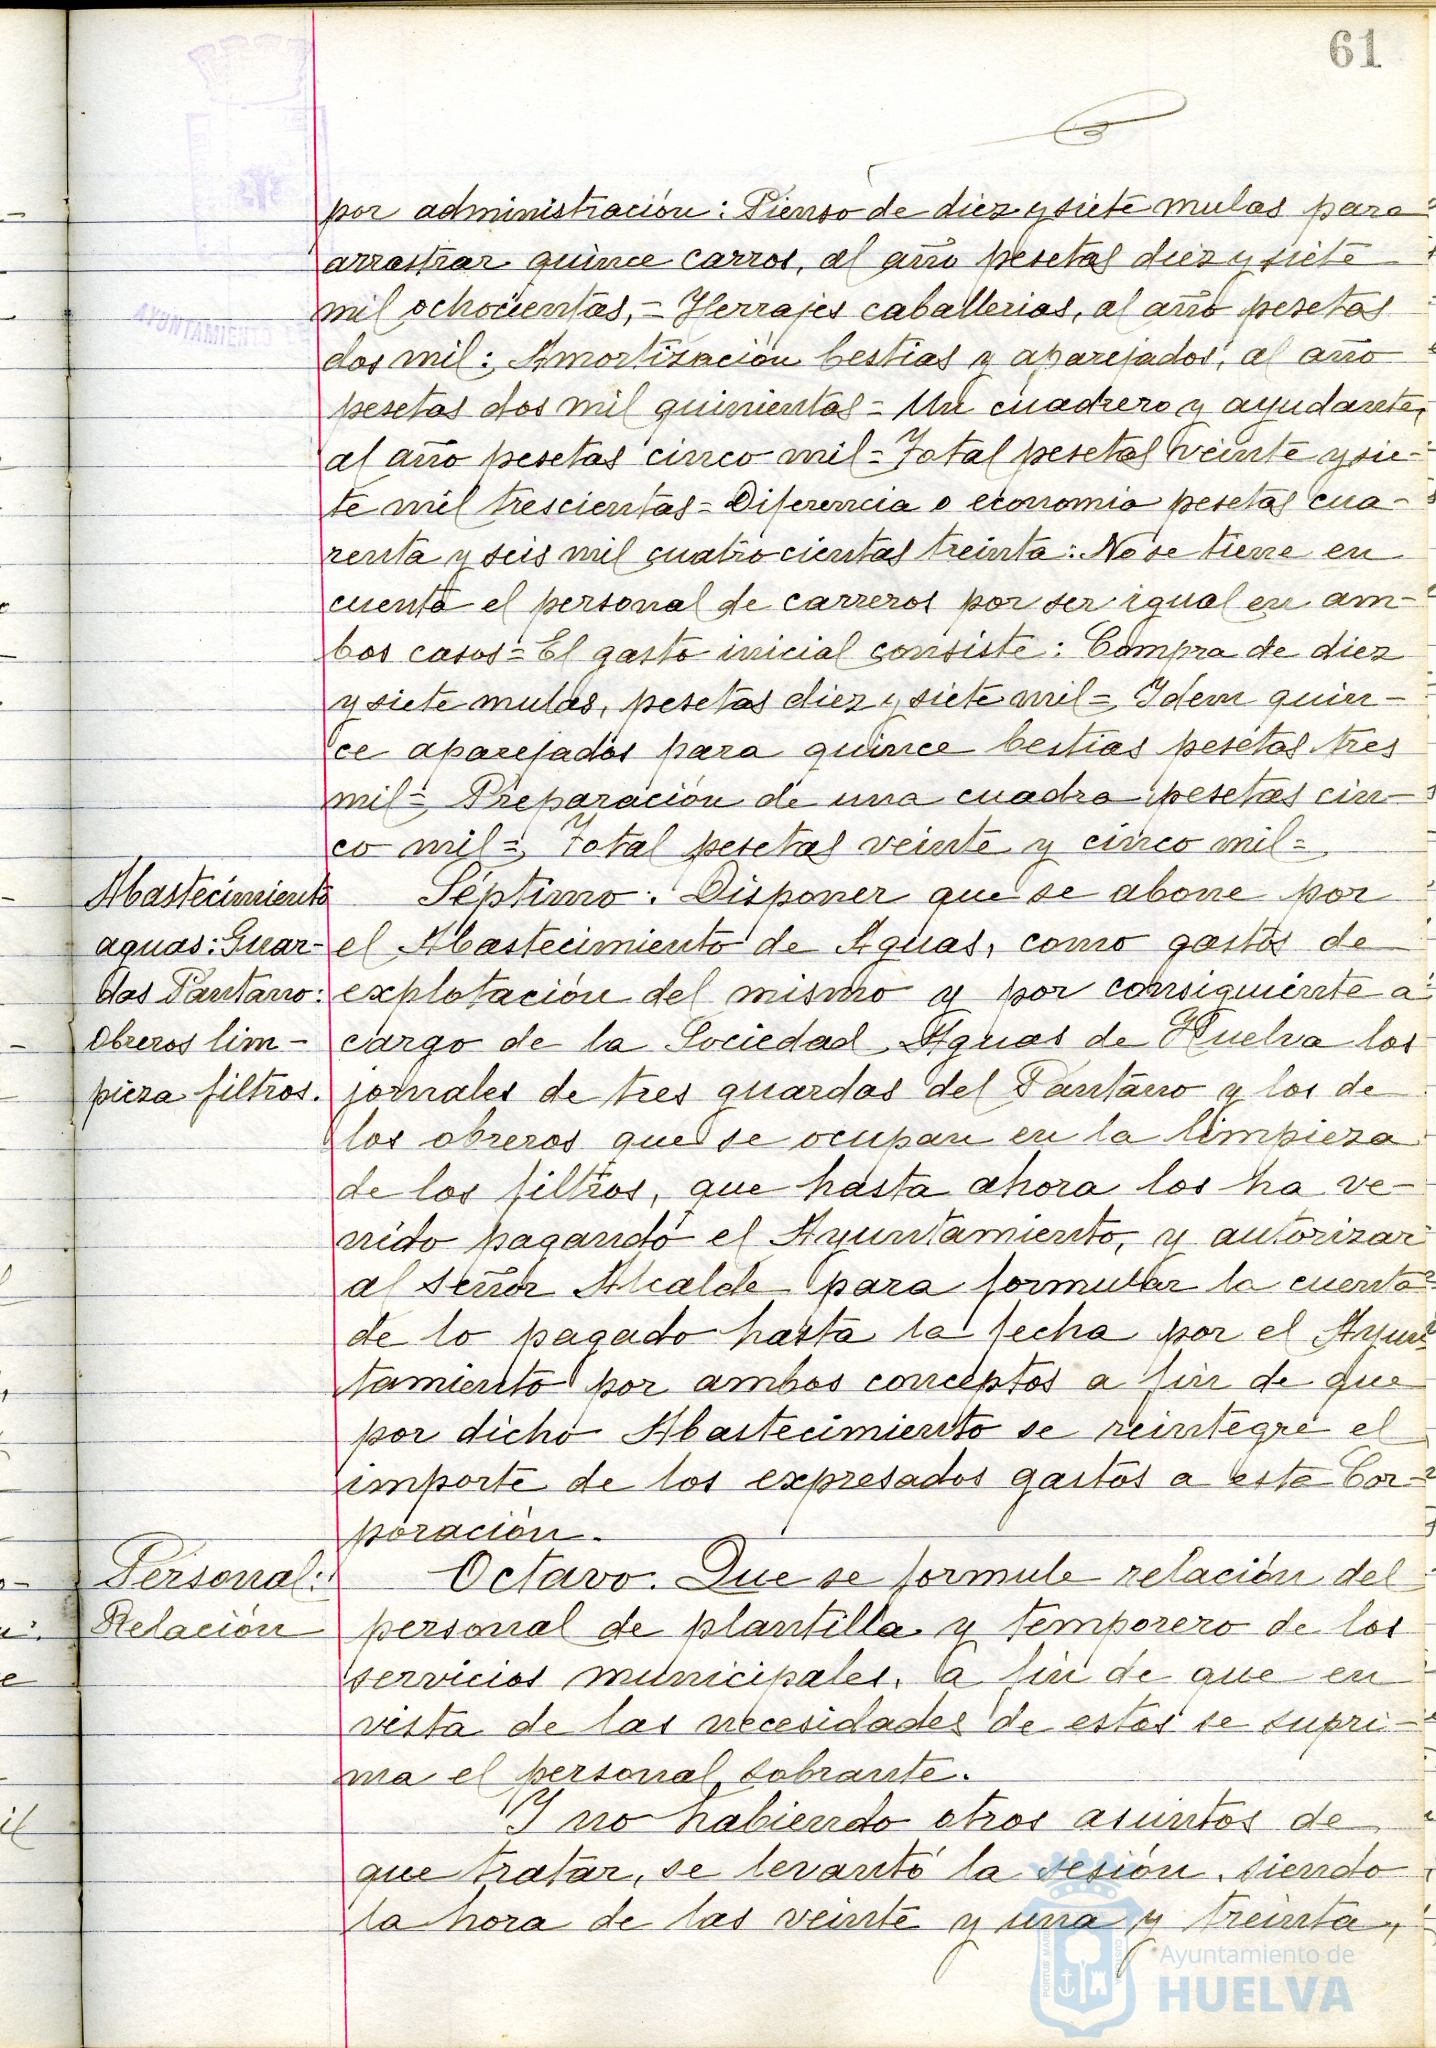 61
por administración: Pienso de diez y siete mulas para
arrastrar quince carros, al año pesetas diez y siete
mil ochocientas,= Herrajes caballerias, al año pesetas
dos mil: Amortización bestias y aparejados, al año
pesetas dos mil quinientas= Un cuadrero y ayudante,
al año pesetas cinco mil= Total pesetas veinte y sie-
te mil trescientas= Diferencia o economia pesetas cua-
renta y seis mil cuatrocientas treinta: No se tiene en
cuenta el personal de carreros por ser igual en am-
bos casos= El gasto inicial consiste: Compra de diez
y siete mulas, pesetas diez y siete mil= Idem quin-
ce aparejados para quince bestias pesetas tres
mil= Preparación de una cuadra pesetas cin-
co mil= Total pesetas veinte y cinco mil=
Abastecimiento
aguas: Guar-
das Pantano:
Obreros lim-
pieza filtros.
Séptimo. Disponer que se abone por
el Abastecimiento de Aguas, como gastos de
explotación del mismo y por consiguiente a
cargo de la Sociedad Aguas de Huelva los
jornales de tres guardas del Pantano y los de
los obreros que se ocupan en la limpieza
de los filtros, que hasta ahora los ha ve-
nido pagando el Ayuntamiento, y autorizar
al señor Alcalde para formular la cuenta
de lo pagado hasta la fecha por el Ayun-
tamiento por ambos conceptos a fin de que
por dicho Abastecimiento se reintegre el
importe de los expresados gastos a esta Cor-
poración.
Personal:
Relación
Octavo. Que se formule relación del
personal de plantilla y temporero de los
servicios municipales, a fin de que en
vista de las necesidades de estos se supri-
ma el personal sobrante.
Y no habiendo otros asuntos de
que tratar, se levantó la sesión, siendo
la hora de las veinte y una y treinta,
AYUNTAMIENTO DE
Ayuntamiento de
HUELVA